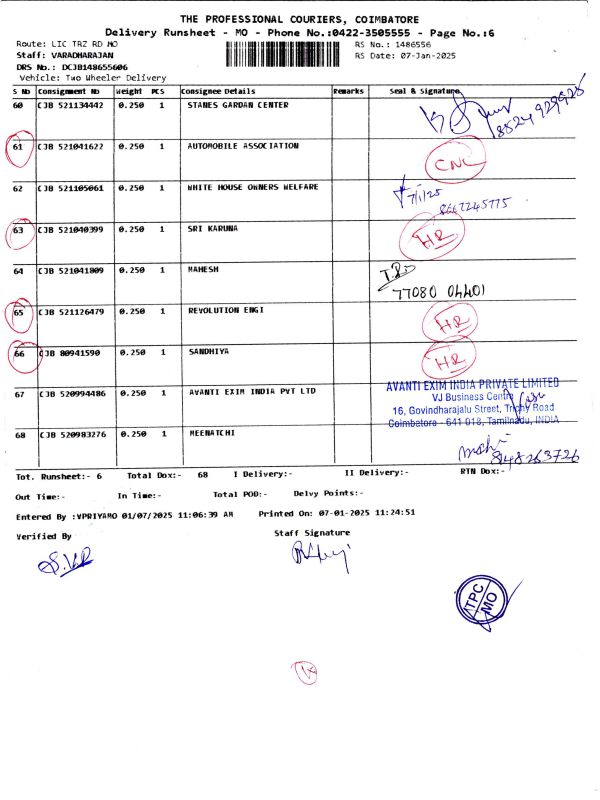 THE PROFESSIONAL COURIERS, COIMBATORE
Delivery Runsheet - MO - Phone No.:0422-3505555 - Page No.:6
Route: LIC TRZ RD MO RS No.: 1486556
Staff: VARADHARAJAN RS Date: 07-Jan-2025
DRS No.: DCJB148655606
Vehicle: Two Wheeler Delivery
S No Consignment No Weight PCS Consignee Details Remarks Seal & Signature
60 CJB 521134442 0.250 1 STANES GARDAN CENTER
8524929925
61 CJB 521041622 0.250 1 AUTOMOBILE ASSOCIATION CNL
62 CJB 521105061 0.250 1 WHITE HOUSE OWNERS WELFARE 7/1/25
8667245775
63 CJB 521040399 0.250 1 SRI KARUNA HR
64 CJB 521041809 0.250 1 MAHESH
77080 04401
65 CJB 521126479 0.250 1 REVOLUTION ENGI HR
66 CJB 80941590 0.250 1 SANDHIYA HR
67 CJB 520994486 0.250 1 AVANTI EXIM INDIA PVT LTD AVANTI EXIM INDIA PRIVATE LIMITED
VJ Business Centre
16, Govindharajalu Street, Trichy Road
Coimbatore - 641 018, Tamilnadu, INDIA
68 CJB 520983276 0.250 1 MEENATCHI
8148263726
Tot. Runsheet:- 6 Total Dox:- 68 I Delivery:- II Delivery:- RTN Dox:-
Out Time:- In Time:- Total POD:- Delvy Points:-
Entered By :VPRIYAMO 01/07/2025 11:06:39 AM Printed On: 07-01-2025 11:24:51
Verified By Staff Signature
S.V.R
TPC
MO